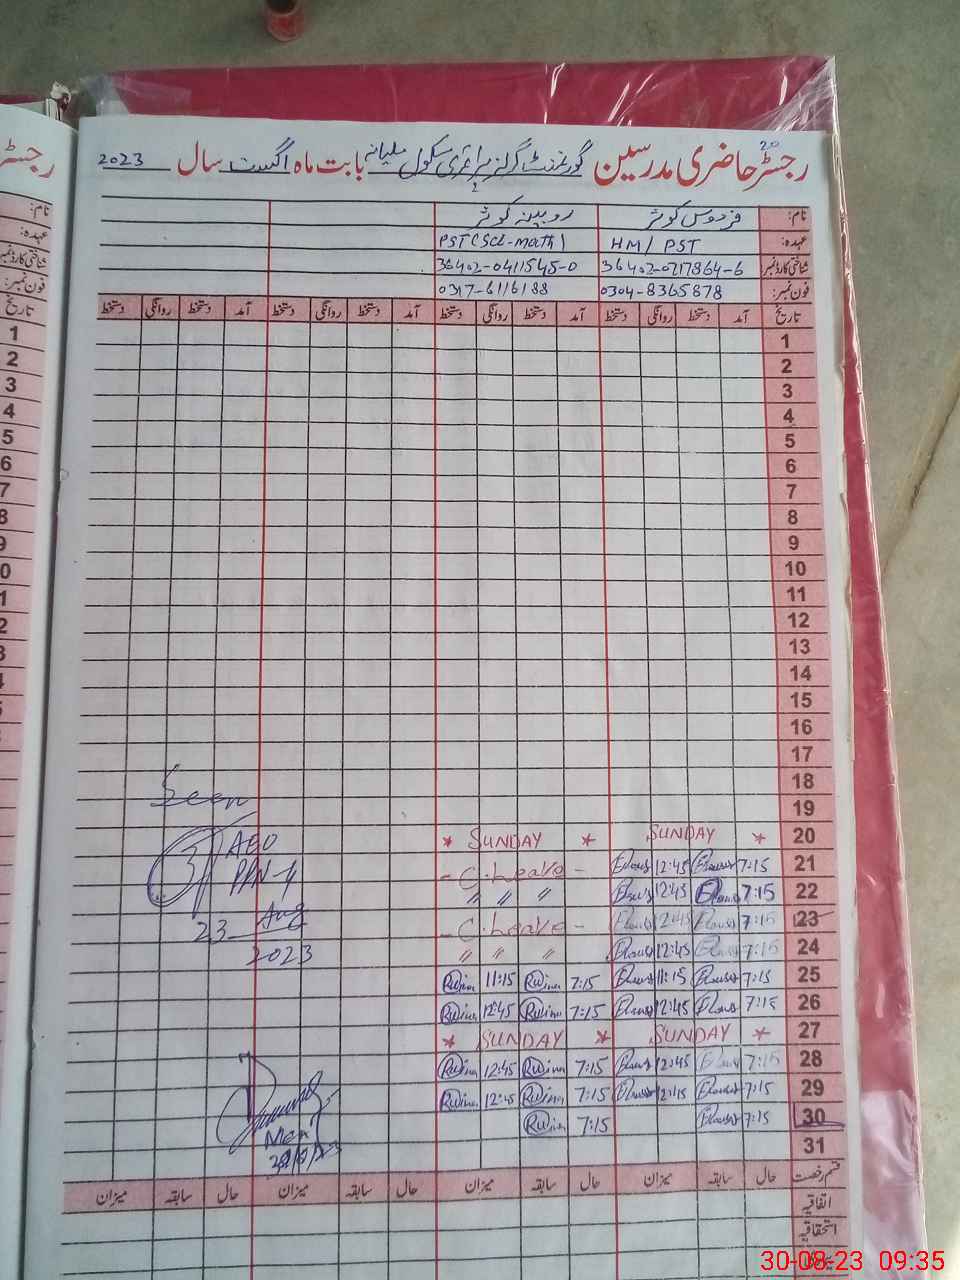 رجسٹر حاضری مدرسین گورنمنٹ گرلز پرائمری سکول ملیانہ بابت ماہ اگست سال 2023
نام: فردوس کوثر روبینہ کوثر
عہدہ: HM/PST PST(Sci-math)
شناختی کارڈ نمبر 36402-0217864-6 36402-0411545-0
فون نمبر: 0304-8365878 0317-6116188
تاریخ آمد دستخط روانگی دستخط آمد دستخط روانگی دستخط آمد دستخط روانگی دستخط آمد دستخط روانگی دستخط
1
2
3
4
5
6
7
8
9
10
11
12
13
14
15
16
17
18
19
20 * SUNDAY * SUNDAY *
21 7:15 12:45 - C.Leave -
22 7:15 12:45 " " "
23 7:15 12:45 - C.Leave -
24 7:15 12:45 " " "
25 7:15 11:15 7:15 11:15
26 7:15 12:45 7:15 12:45
27 * SUNDAY * SUNDAY *
28 7:15 12:45 7:15 12:45
29 7:15 12:45 7:15 12:45
30 7:15 7:15
31
Seen
AEO
23 Aug
2023
قسم رخصت حال سابقہ میزان حال سابقہ میزان حال سابقہ میزان حال سابقہ میزان
اتفاقیہ
استحقاقیہ
30-08-23 09:35